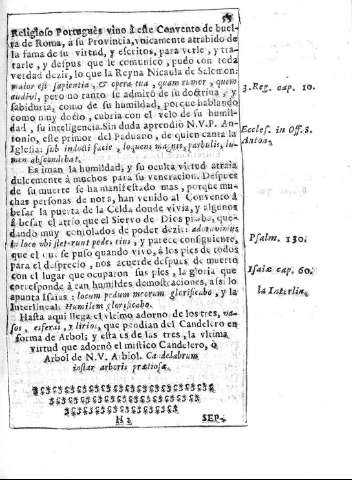 Religioso Portuguès vino à este Convento de buel-
ta de Roma, à su Provincia, vnicamente atrahido de
la fama de su virtud, y escritos, para verle, y tra-
tarle, y despues que le comunicò, pudo con toda
verdad dezir, lo que la Reyna Nicaula de Salomon:
maior est sapientia, & opera tua, quam rumor, quem
audivi, pero no tanto se admirò de su doctrina, y
sabiduria, como de su humildad, porque hablando
como muy docto, cubria con el velo de su humil-
dad, su inteligencia. Sin duda aprendiò N. V. P. An-
tonio, este primor del Paduano, de quien canta la
Iglesia: sub indocti facie, loquens magna, parbulis, lu-
men abscondebat.
3. Reg. cap. 10.
Eccles. in Off. S.
Anton.
Es iman la humildad, y su oculta virtud atraìa
dulcemente à muchos para su veneracion. Despues
de su muerte se ha manifestado mas, porque mu-
chas personas de nota, han venido al Convento à
besar la puerta de la Celda donde vivia, y algunos
à besar el atrio que el Siervo de Dios pisaba, que-
dando muy consolados de poder dezir: adoravimus
in loco vbi steterunt pedes eius, y parece consiguiente,
que el que se puso quando vivo, à los pies de todos
para el desprecio, nos acuerde despues de muerto
con el lugar que ocuparon sus pies, la gloria que
corresponde à tan humildes demostraciones, assi lo
apunta Isaias: locum pedum meorum glorificabo, y la
Interlineal: Humilem glorificabo.
Psalm. 130.
Isaiæ cap. 60.
la Interlin.
Hasta aqui llega el vltimo adorno de los tres, va-
sos, esferas, y lirios, que pendian del Candelero en
forma de Arbol; y esta es de las tres, la vltima
virtud que adornò el mistico Candelero, ò
Arbol de N. V. Arbiol. Candelabrum
instar arboris pretiosæ.
H 2 SEP-